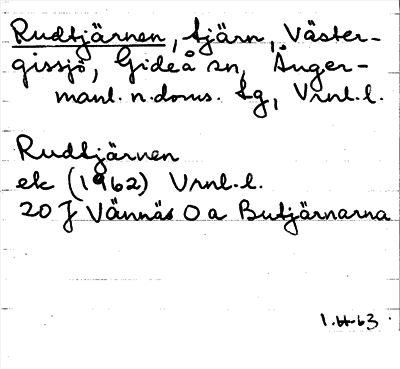 Rudtjärnen, tjärn, Väster-
gissjö, Gideå sn, Ånger-
manl. n. doms. tg, Vrnl. l.
Rudtjärnen
ek (1962) Vrnl. l.
20 J Vännäs O a Butjärnarna